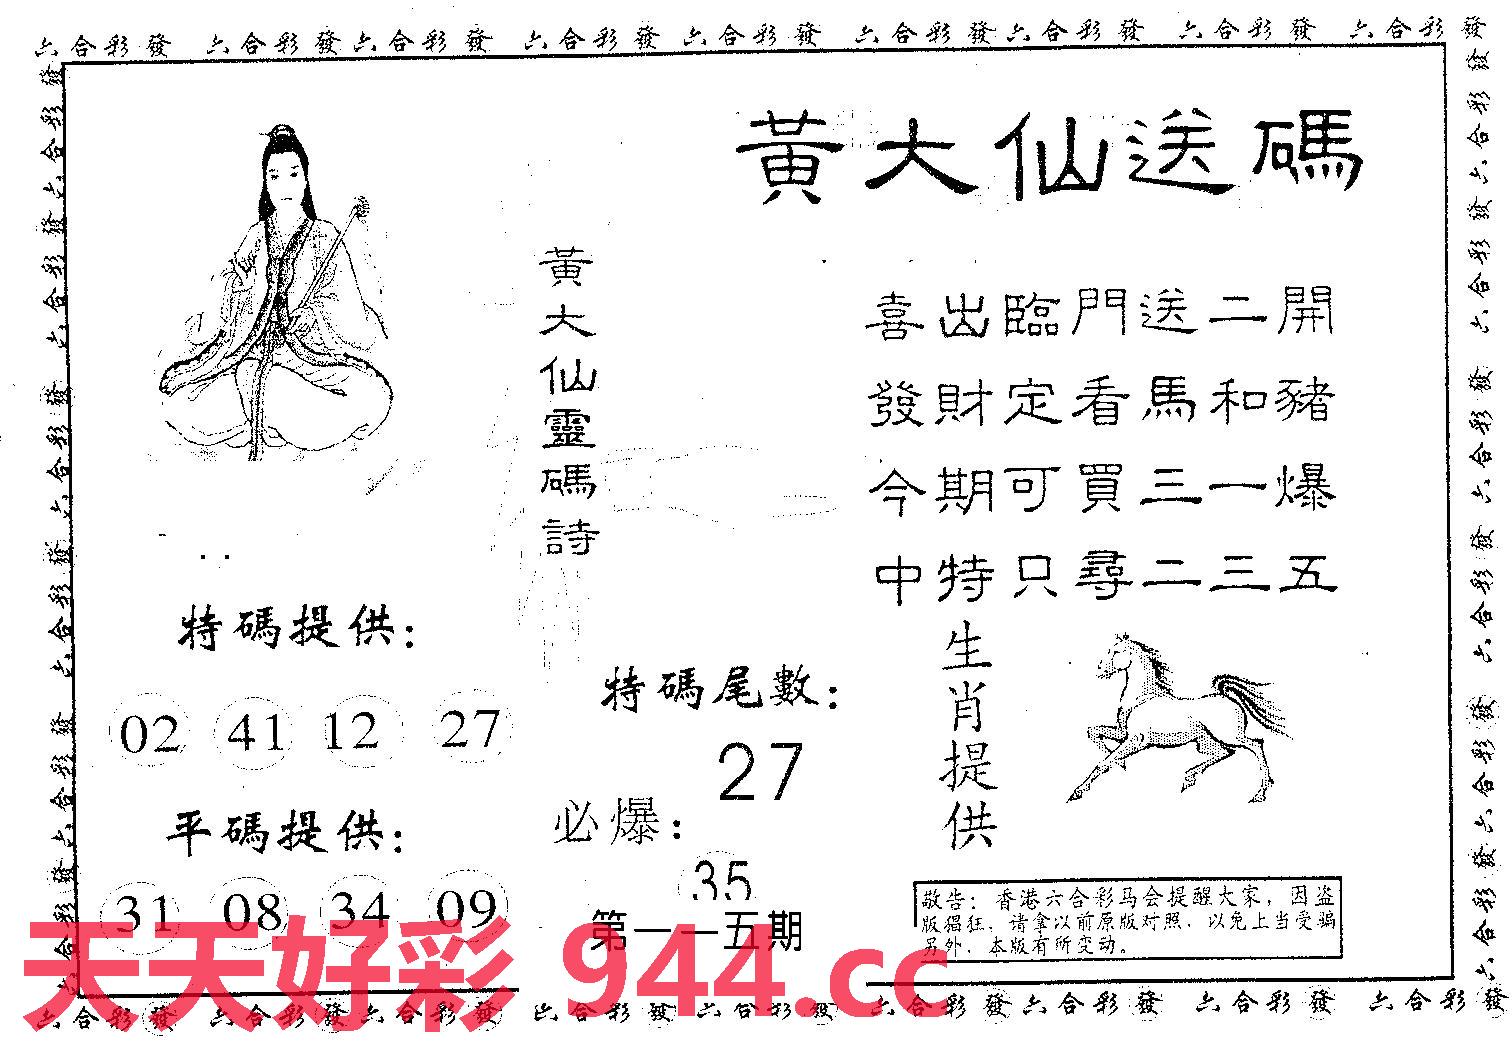 六合彩發 六合彩發 六合彩發 六合彩發 六合彩發 六合彩發 六合彩發 六合彩發 六合彩發
黃大仙送碼
黃大仙靈碼詩
喜出臨門送二開
發財定看馬和豬
今期可買三一爆
中特只尋二三五
特碼提供：
02 41 12 27
平碼提供：
31 08 34 09
特碼尾數：
27
必爆：
35
第一一五期
生肖提供
敬告：香港六合彩马会提醒大家，因盗
版猖狂，请拿以前原版对照，以免上当受骗
另外，本版有所变动。
天天好彩 944.cc
六合彩發 六合彩發 六合彩發 六合彩發 六合彩發 六合彩發 六合彩發 六合彩發 六合彩發